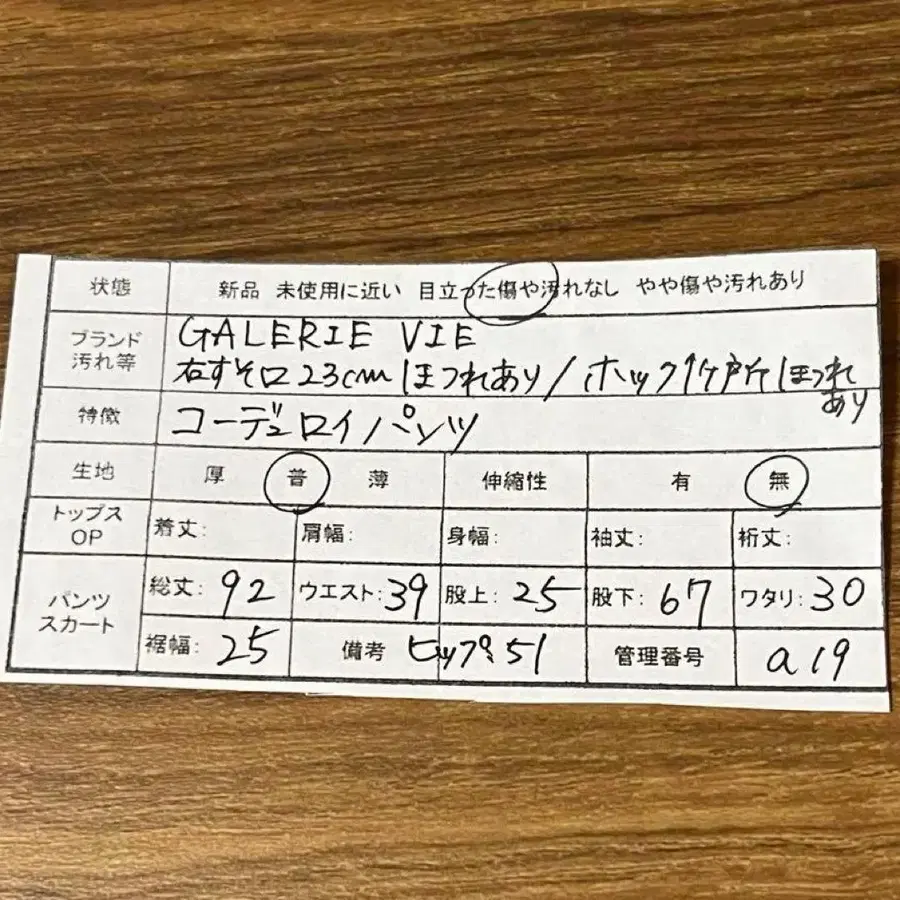 状態 新品 未使用に近い 目立った傷や汚れなし やや傷や汚れあり
ブランド GALERIE VIE
汚れ等 右すそ口23cmほつれあり/ホック1ヶ所ほつれ
あり
特徴 コーデュロイパンツ
生地 厚 普 薄 伸縮性 有 無
トップス
OP 着丈: 肩幅: 身幅: 袖丈: 裄丈:
パンツ
スカート 総丈:92 ウエスト:39 股上:25 股下:67 ワタリ:30
裾幅:25 備考 ヒップ:51 管理番号 a19